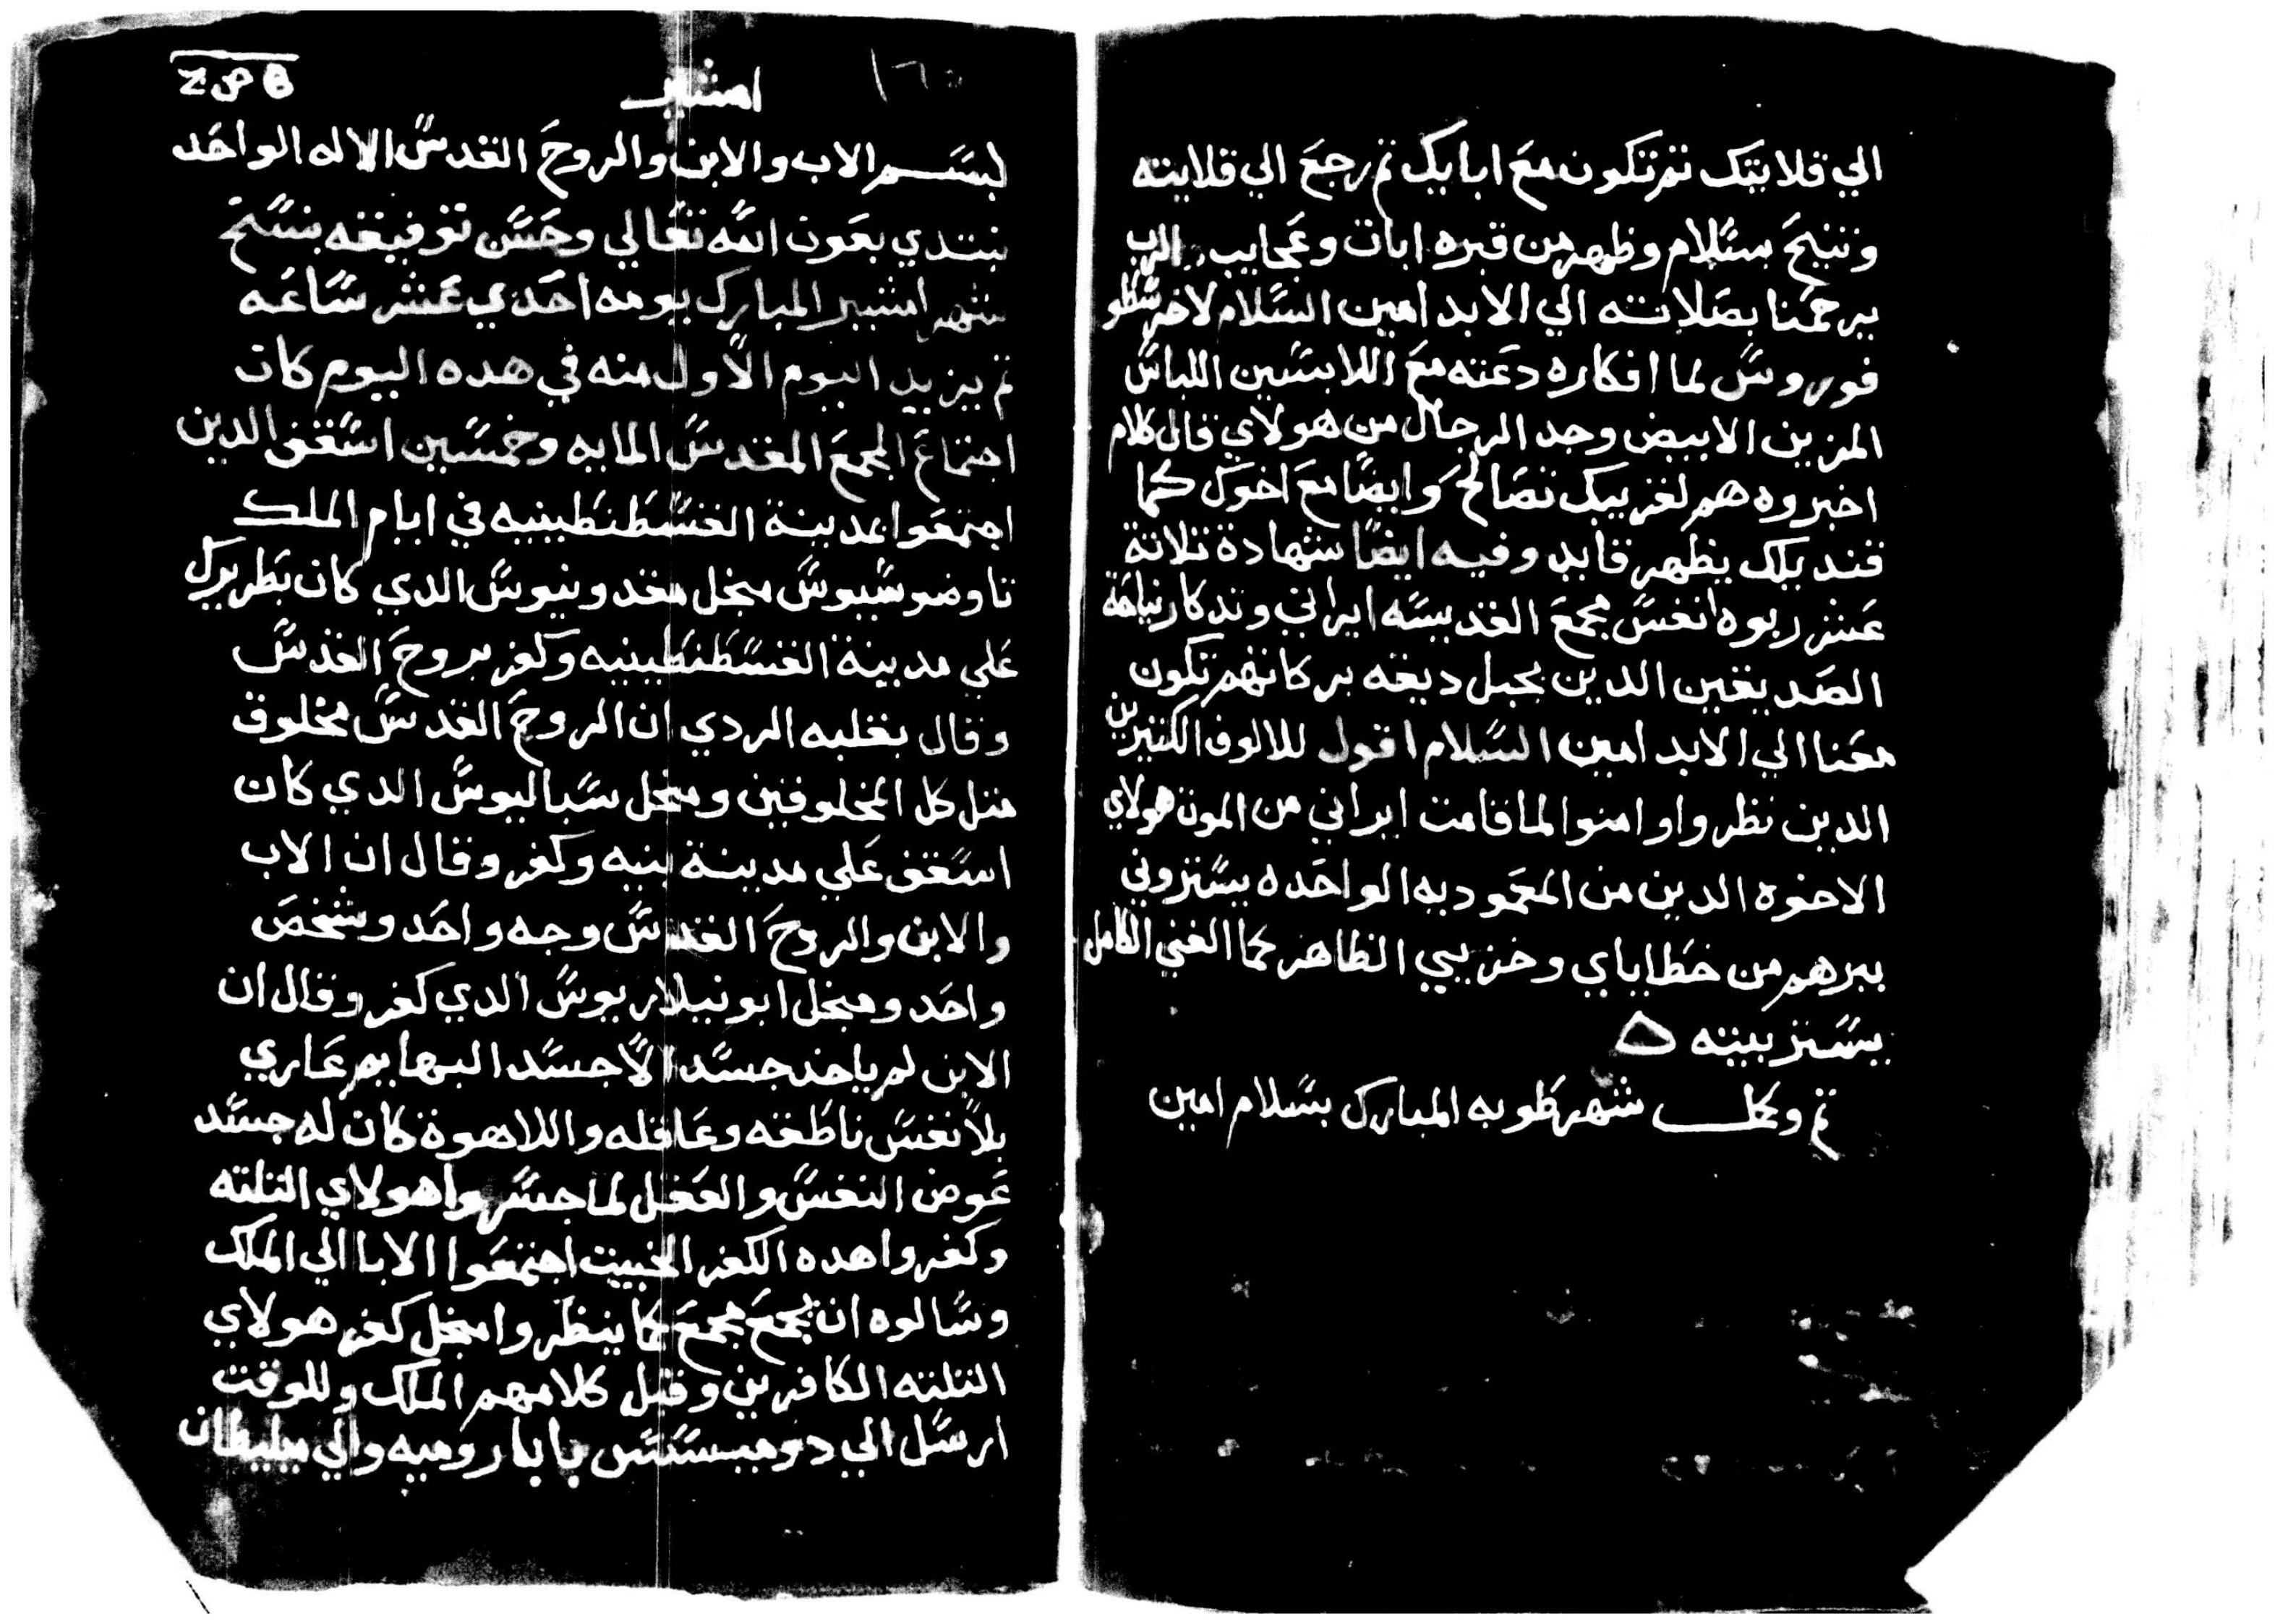 الي قلايتك تم تكون مع ابايك تم رجع الي قلايته
وتنيح بسلام وظهر من قبره ايات وعجايب الرب
يرحمنا بصلاته الي الابد امين السلام لاخرسطو
فوروس لما افكاره دعته مع اللابسين اللباس
المزين الابيض وجد الرجال من هولاي قال كلام
اخبروه هم لقريبك تصالح وايضا مع اخوك كما
قنديلك يظهر قايد وفيه ايضا شهادة تلاتة
عشر ربوه انفس مجمع القديسه ايراني وتدكار نياحة
الصديقين الدين بجبل ديقه بركاتهم تكون
معنا الي الابد امين السلام اقول للالوف الكتيرين
الدين نظروا وامنوا لما قامت ايراني من الموت هولاي
الاخوه الدين من المعموديه الواحده يستروني
ببرهم من خطاياي وخزيي الظاهر كما الغني الكامل
يستر بيته
تم وكمل شهر طوبه المبارك بسلام امين
امشير
١٦٥
بسم الاب والابن والروح القدس الاله الواحد
نبتدي بعون الله تعالي وحسن توفيقه بنسخ
شهر امشير المبارك يومه احدي عشر ساعه
تم يزيد اليوم الاول منه في هده اليوم كان
اجتماع المجمع المقدس المايه وخمسين اسقف الدين
اجتمعوا بمدينة القسطنطينيه في ايام الملك
تاوضوسيوس مجل مقدونيوس الدي كان بطريرك
علي مدينة القسطنطينيه وكفر بروح القدس
وقال بقلبه الردي ان الروح القدس مخلوق
متل كل المخلوقين ومجل سباليوس الدي كان
اسقف علي مدينة نيه وكفر وقال ان الاب
والابن والروح القدس وجه واحد وشخص
واحد ومجل ابونيلاريوس الدي كفر وقال ان
الابن لم ياخد جسد الا جسد البهايم عاري
بلا نفس ناطقه وعاقله واللاهوة كان له جسد
عوض النفس والعقل لما جسروا هولاي التلته
وكفروا هده الكفر الخبيت اجتمعوا الابا الي الملك
وسالوه ان يجمع مجمع كما ينظروا مجل كفر هولاي
التلته الكافرين وقبل كلامهم الملك وللوقت
ارسل الي دوميستس بابا روميه والي بيليطان